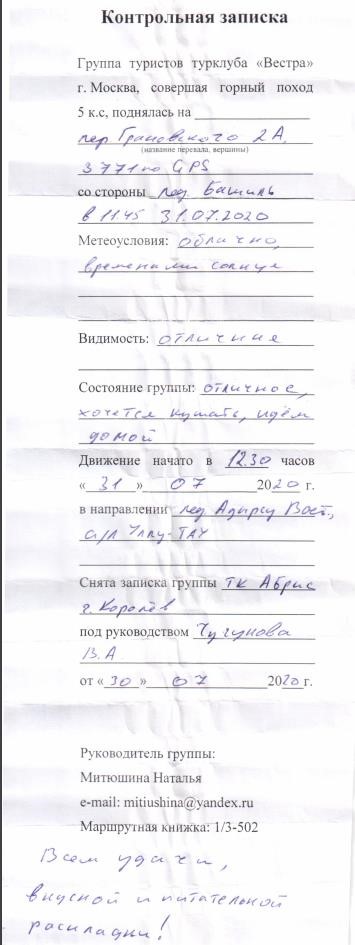 Контрольная записка
Группа туристов турклуба «Вестра»
г. Москва, совершая горный поход
5 к.с, поднялась на
пер. Грановского 2А,
(название перевала, вершины)
3771 по GPS
со стороны лед. Башиль
в 11 45 31.07.2020
Метеоусловия: облачно,
временами солнце
Видимость: отличная
Состояние группы: отличное,
хочется кушать, идём
домой
Движение начато в 12.30 часов
«31» 07 2020 г.
в направлении лед Адырсу Вост.,
а/л Уллу-ТАУ
Снята записка группы ТК Абрис
г. Королёв
под руководством Чугунова
В.А
от «30» 07 2020г.
Руководитель группы:
Митюшина Наталья
e-mail: mitiushina@yandex.ru
Маршрутная книжка: 1/3-502
Всем удачи,
вкусной и питательной
раскладки!